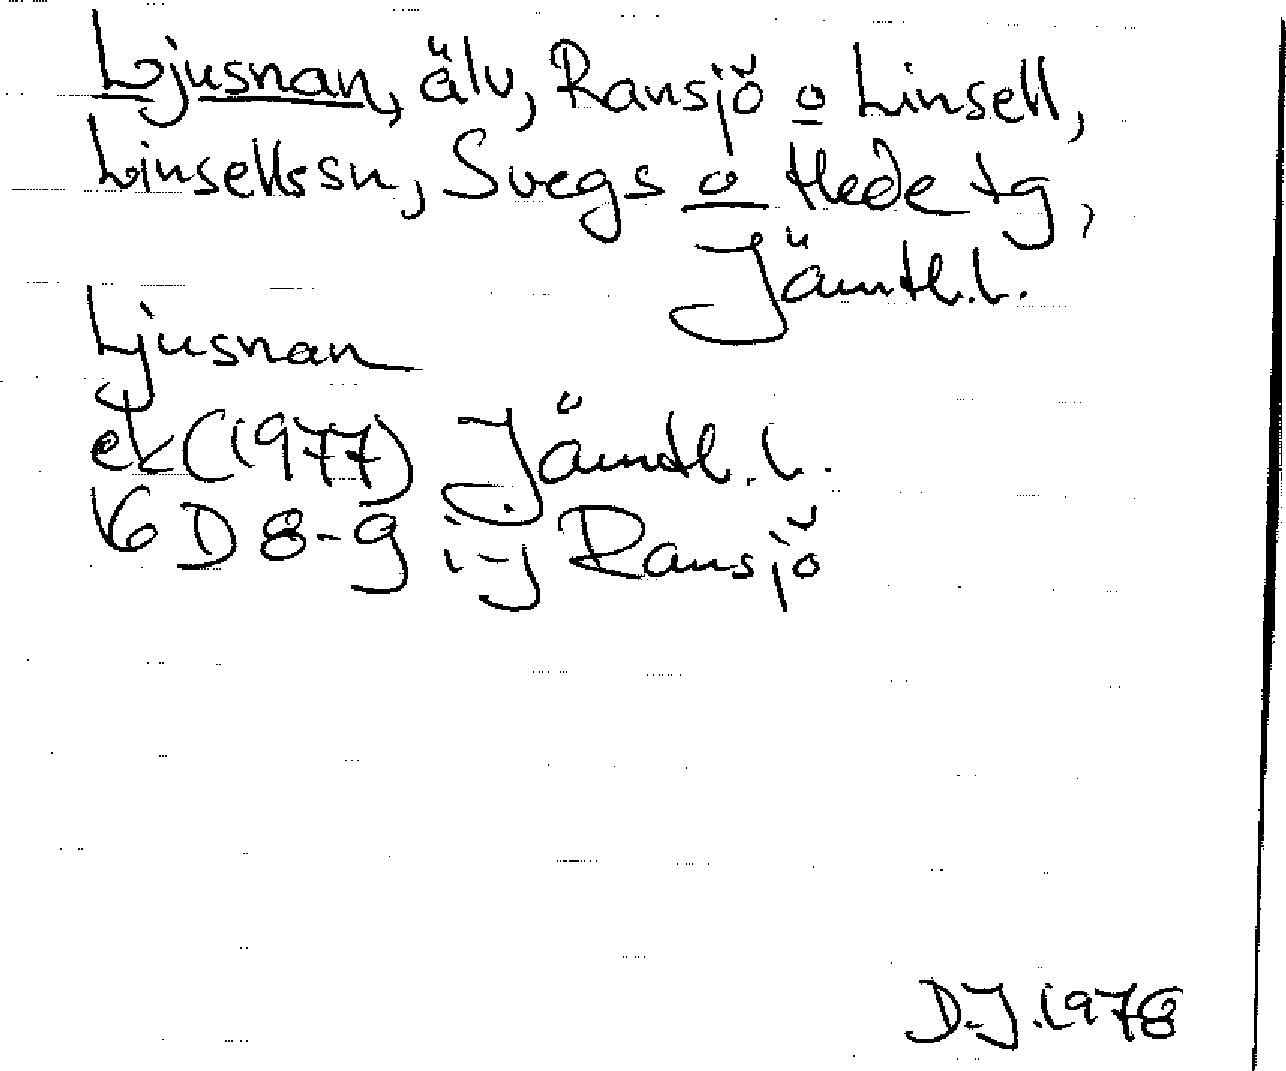 Ljusnan, älv, Ransjö o Linsell,
Linsells sn, Svegs o Hede tg,
Jämtl.l.
Ljusnan
ek (1977) Jämtl.l.
16 D 8-9 i-j Ransjö
D.J. 1978